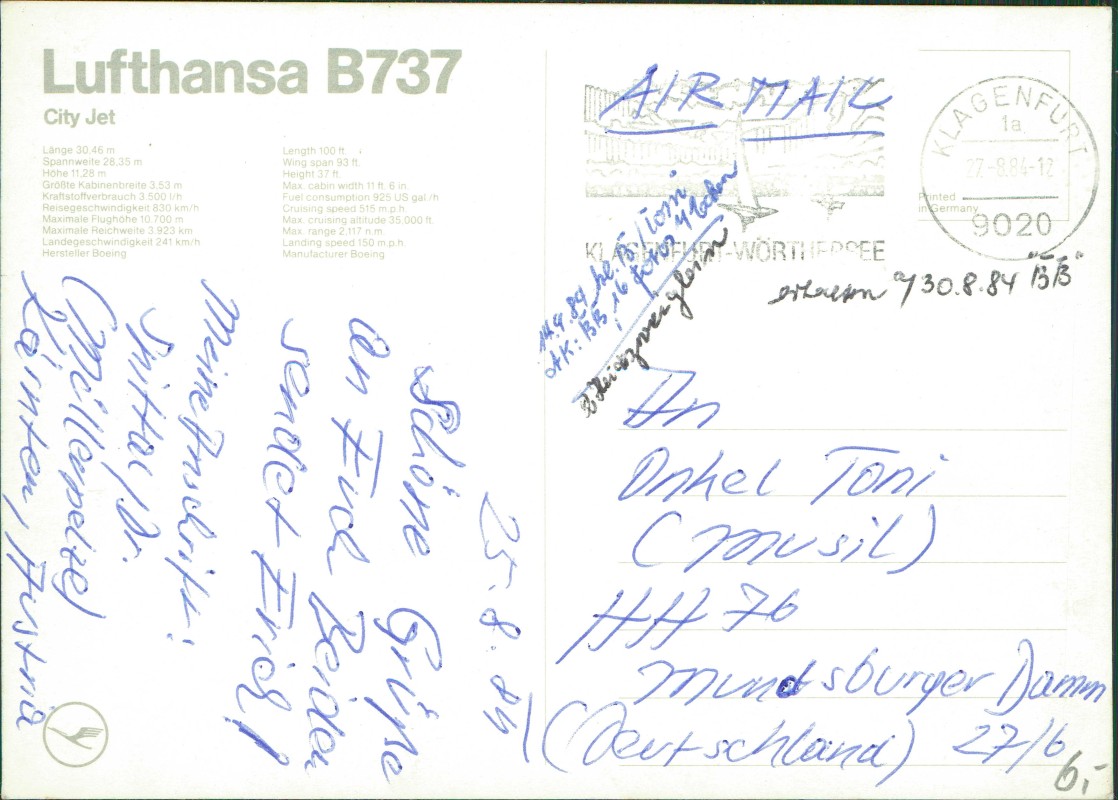 Lufthansa B737
City Jet
Länge 30,46 m
Spannweite 28,35 m
Höhe 11,28 m
Größte Kabinenbreite 3,53 m
Kraftstoffverbrauch 3.500 l/h
Reisegeschwindigkeit 830 km/h
Maximale Flughöhe 10.700 m
Maximale Reichweite 3.923 km
Landegeschwindigkeit 241 km/h
Hersteller Boeing
Length 100 ft.
Wing span 93 ft.
Height 37 ft.
Max. cabin width 11 ft. 6 in.
Fuel consumption 925 US gal./h
Cruising speed 515 m.p.h.
Max. cruising altitude 35.000 ft.
Max. range 2,117 n.m.
Landing speed 150 m.p.h.
Manufacturer Boeing
25.8.84
Schöne Grüße
an Euch Beiden
sendet Erich!
Meine Anschrift:
Spittal/Dr.
Kärnten, Austria
AIR MAIL
KLAGENFURT-WÖRTHERSEE
KLAGENFURT
1a
27.-8.84-12
9020
Printed
in Germany
30.8.84 "BB"
An
Onkel Toni
(Musil)
HH 76
Mundsburger Damm
27/6
(Deutschland)
6,-